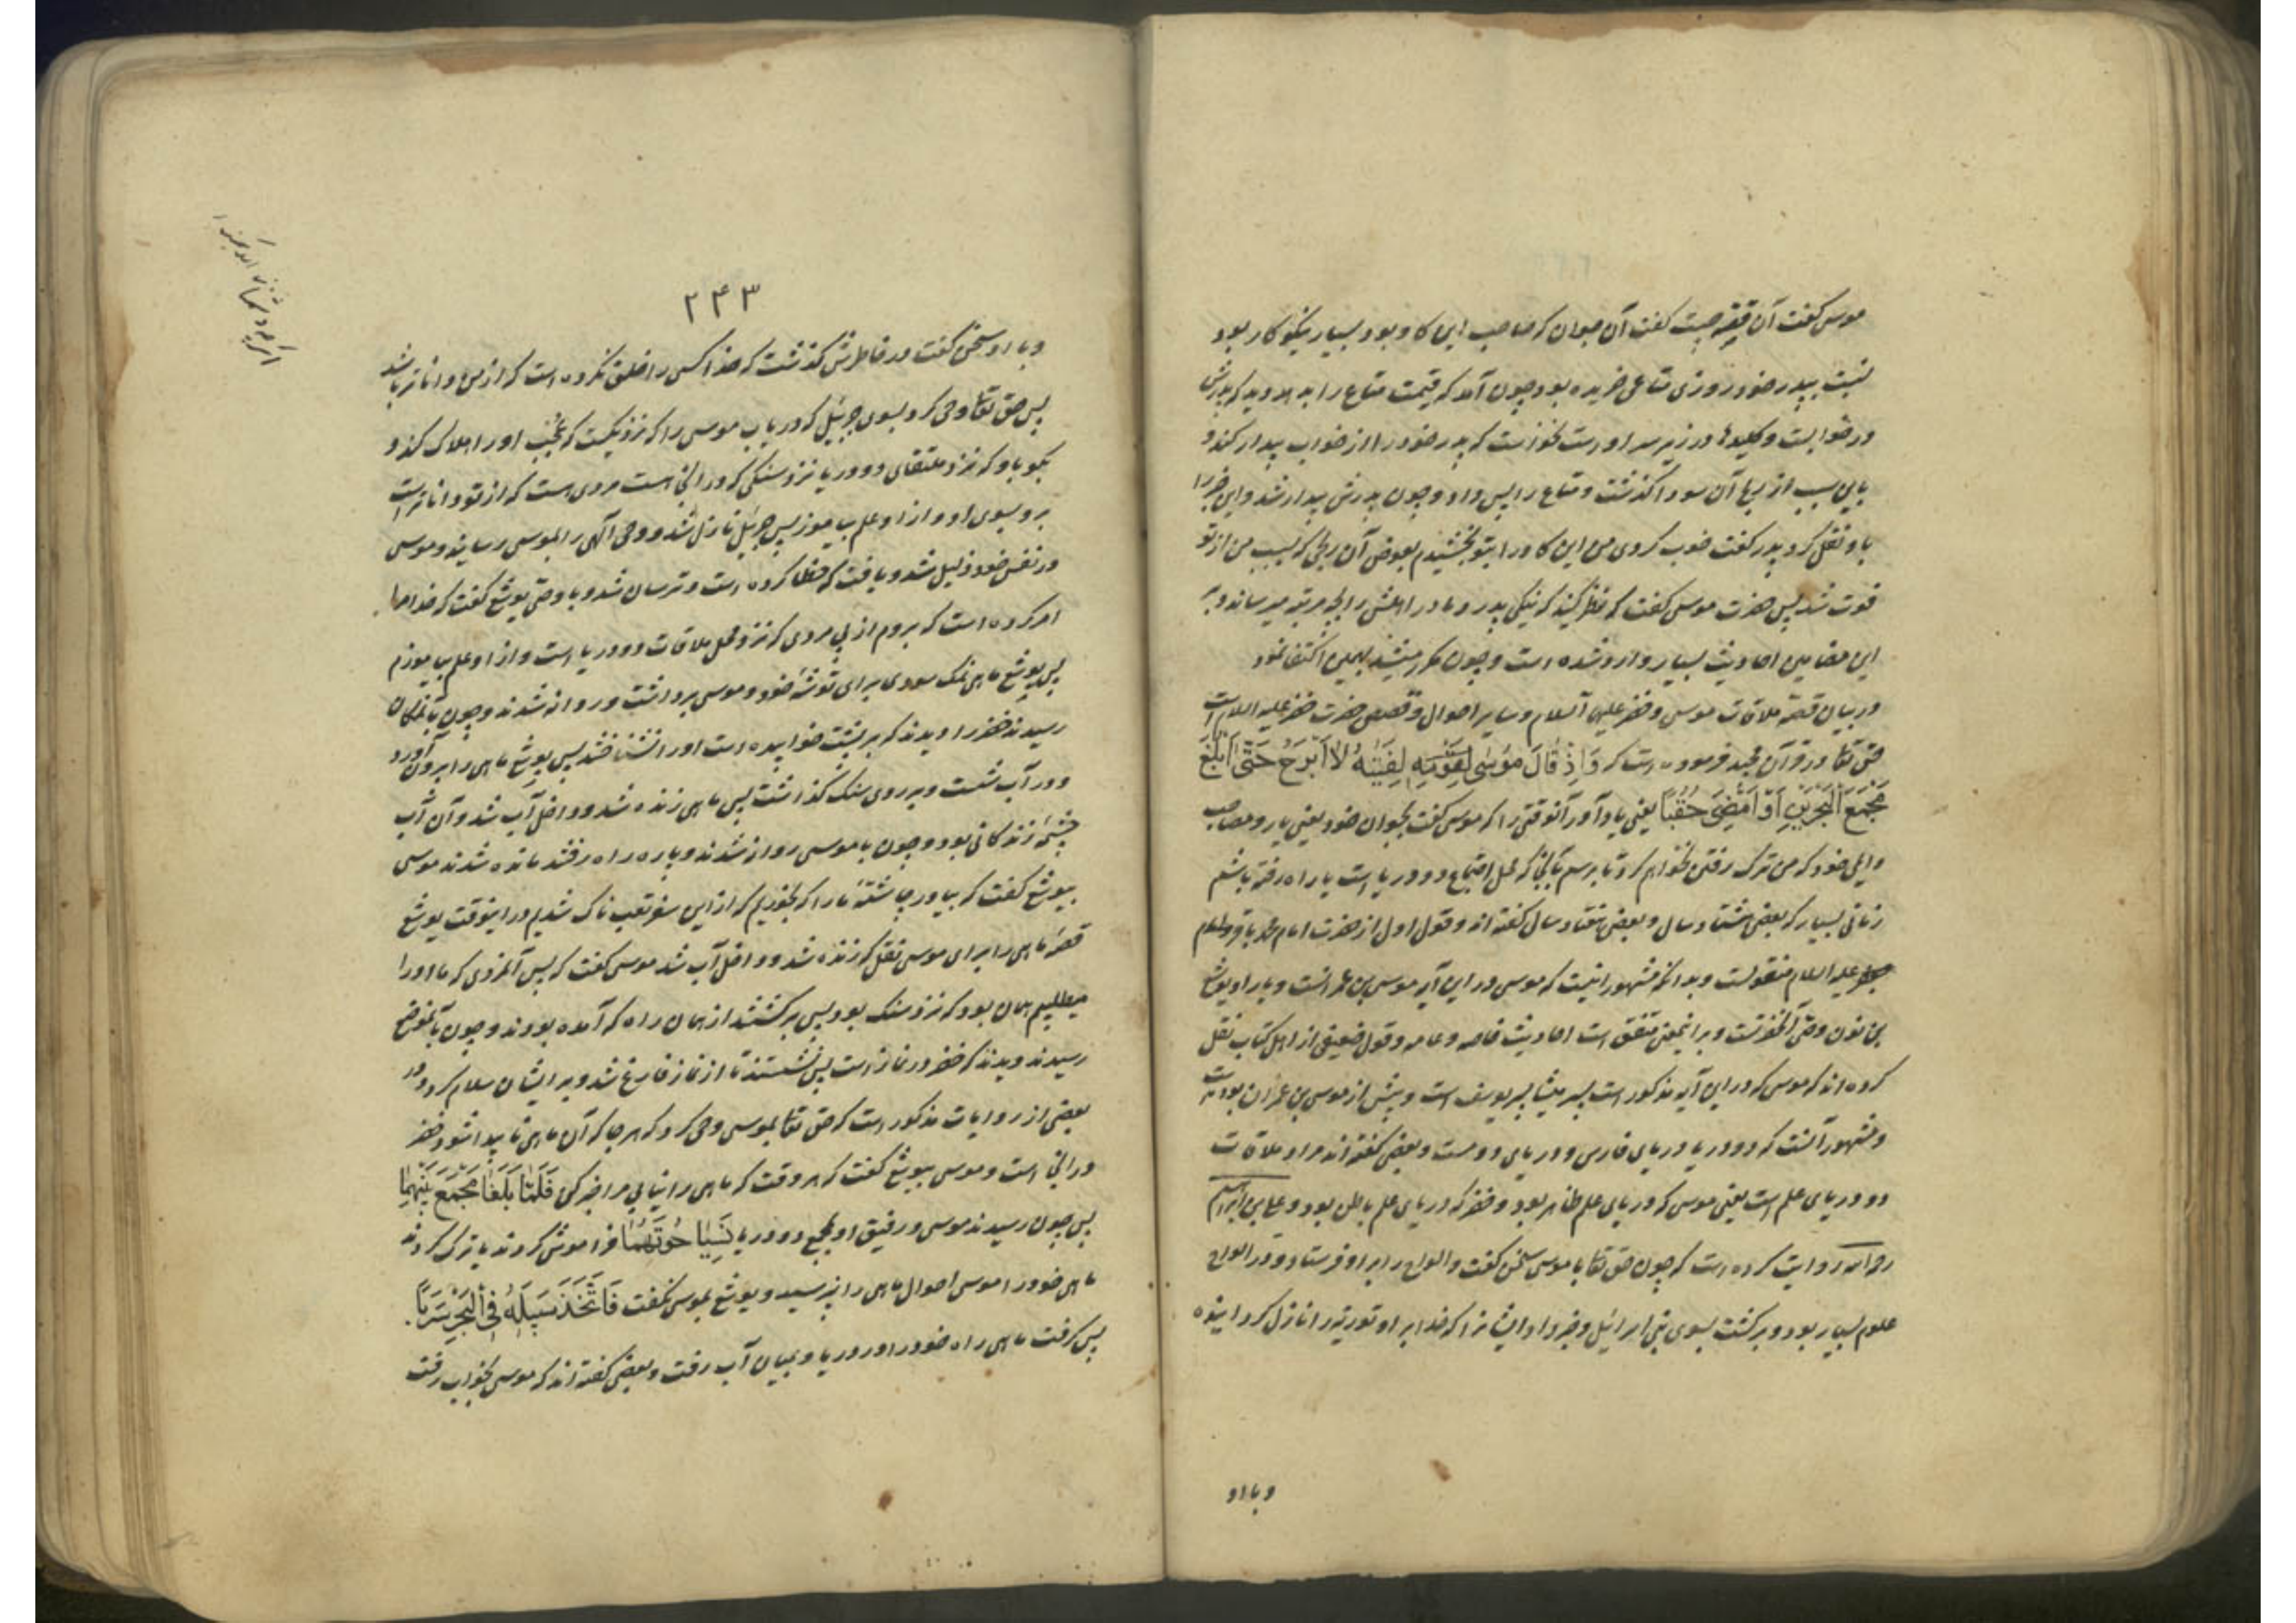 موسی گفت آن قصه چیست گفت آن جوان که صاحب این کاو بود بسیار نیکو کار بود
نسبت بپدر خود روزی متاعی خریده بود چون آمد که قیمت متاع را بدهد دید که پدرش
در خوابست و کلیدها در زیر سر اوست نخواست که پدر خود را از خواب بیدار کند و
باین سبب از بهای آن سودا گذشت و متاع را پس داد و چون پدرش بیدار شد و این خبر را
باو نقل کرد پدر گفت خوب کردی من این کاو را بتو بخشیدم بعوض آن ربحی که بسبب من از تو
فوت شد پس حضرت موسی گفت که نظر کنید که نیکی پدر و مادر اهلش را بچه مرتبه میرساند و بر
این مضامین احادیث بسیار وارد شده است و چون مکرر میشد بهمین اکتفا نمود
در بیان قصه ملاقات موسی و خضر علیهما السلام و سایر احوال و قصص حضرت خضر علیه السلام است
حق تعا در قرآن مجید فرموده است که وَاِذْ قَالَ مُوسٰی لِفَتٰیهُ لٰا اَبْرَحُ حَتّٰی اَبْلُغَ
مَجْمَعَ الْبَحْرَیْنِ اَوْ اَمْضِیَ حُقُبًا یعنی یاد آور آنوقتی را که موسی گفت بجوان خود یعنی یار و مصاحب
و ایلی خود که من ترک رفتن نخواهم کرد تا برسم بآنجائی که محل اجتماع دو دریا است یا راه رفته باشم
زمانی بسیار که بعضی هشتاد سال و بعضی هفتاد سال گفته اند و قول اول از حضرت امام محمد باقر و امام
جعفر علیه السلام منقولست و بدانکه مشهور اینست که موسی در این آیه موسی بن عمرانست و یار او یوشع
بن نون وصی آنحضرتست و بر اینمعنی متفق است احادیث خاصه و عامه و قول ضعیفی از اهل کتاب نقل
کرده اند که موسی که در این آیه مذکور است پسر میشا پسر یوسف است و پیش از موسی بن عمران بوده است
و مشهور آنست که دو دریا دریای فارس و دریای روم است و بعضی گفته اند مراد ملاقات
دو دریای علم است یعنی موسی که دریای علم ظاهر بود و خضر که دریای علم باطن بود و علی بن ابراهیم
رحمه الله روایت کرده است که چون حق تعا با موسی سخن گفت و الواح را بر او فرستاد و در الواح
علوم بسیار بود و برگشت بسوی بنی اسرائیل و خبر داد ایشانرا که خدا بر او توریة را نازل کردانیده
و با او
۲۴۳
و با او سخن گفت در خاطرش گذشت که خدا کسی را خلق نکرده است که از من داناتر باشد
پس حق تعا وحی کرد بسوی جبرئیل که دریاب موسی را که نزدیکست که عُجب او را هلاک کند و
بگو باو که نزد ملتقای دو دریا نزد سنگی که در آنجا است مردی هست که از تو داناتر است
برو بسوی او و از او علم بیاموز پس جبرئیل نازل شد و وحی آلهی را بموسی رسانید و موسی
در نفس خود ذلیل شد و یافت که خطا کرده است و ترسان شد و با وصی یوشع گفت که خدا ما را
امر کرده است که بروم از پی مردی که نزد محل ملاقات دو دریا است و از او علم بیاموزم
پس یوشع ماهی نمک سودی برای توشه خود و موسی برداشت و روانه شدند و چون بآنمکان
رسیدند خضر را دیدند که بر پشت خوابیده است او را نشناختند پس یوشع ماهی را بیرون آورد
و در آب شست و بر روی سنک گذاشت پس ماهی زنده شد و داخل آب شد و آن آب
چشمه زندگانی بود و چون با موسی روانه شدند و پاره راه رفتند مانده شدند موسی
بیوشع گفت که بیاور چاشته ما را که بخوریم که از این سفر تعب ناک شدیم در اینوقت یوشع
قصه ماهی را برای موسی نقل که زنده شد و داخل آب شد موسی گفت که پس آنمردی که ما او را
میطلبیم همان بود که نزد سنک بود پس برگشتند از همان راه که آمده بودند و چون بآنموضع
رسیدند دیدند که خضر در نماز است پس نشستند تا از نماز فارغ شد و بر ایشان سلام کرد و در
بعضی از روایات مذکور است که حق تعا بموسی وحی کرد که هر جا که آن ماهی ناپیدا شود خضر
در آنجا است و موسی بیوشع گفت که هر وقت که ماهی را نیابی مرا خبر کن فَلَمَّا بَلَغَا مَجْمَعَ بَیْنِهِمَا
پس چون رسیدند موسی و رفیق او بمجمع دو دریا نَسِیَا حُوتَهُمَا فراموش کردند یا ترک کردند
ماهی خود را موسی احوال ماهی را نپرسید و یوشع بموسی نگفت فَاتَّخَذَ سَبِیلَهُ فِی الْبَحْرِ سَرَبًا
پس گرفت ماهی راه خود را در دریا و بمیان آب رفت و بعضی گفته اند که موسی بخواب رفت